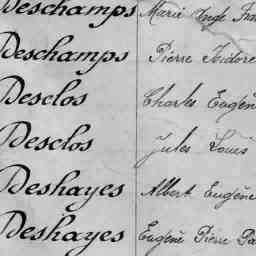 Deschamps Marie Ange
Deschamps Pierre Isidore
Desclos Charles Eugène
Desclos Jules Louis
Deshayes Albert Eugène
Deshayes Eugène Pierre